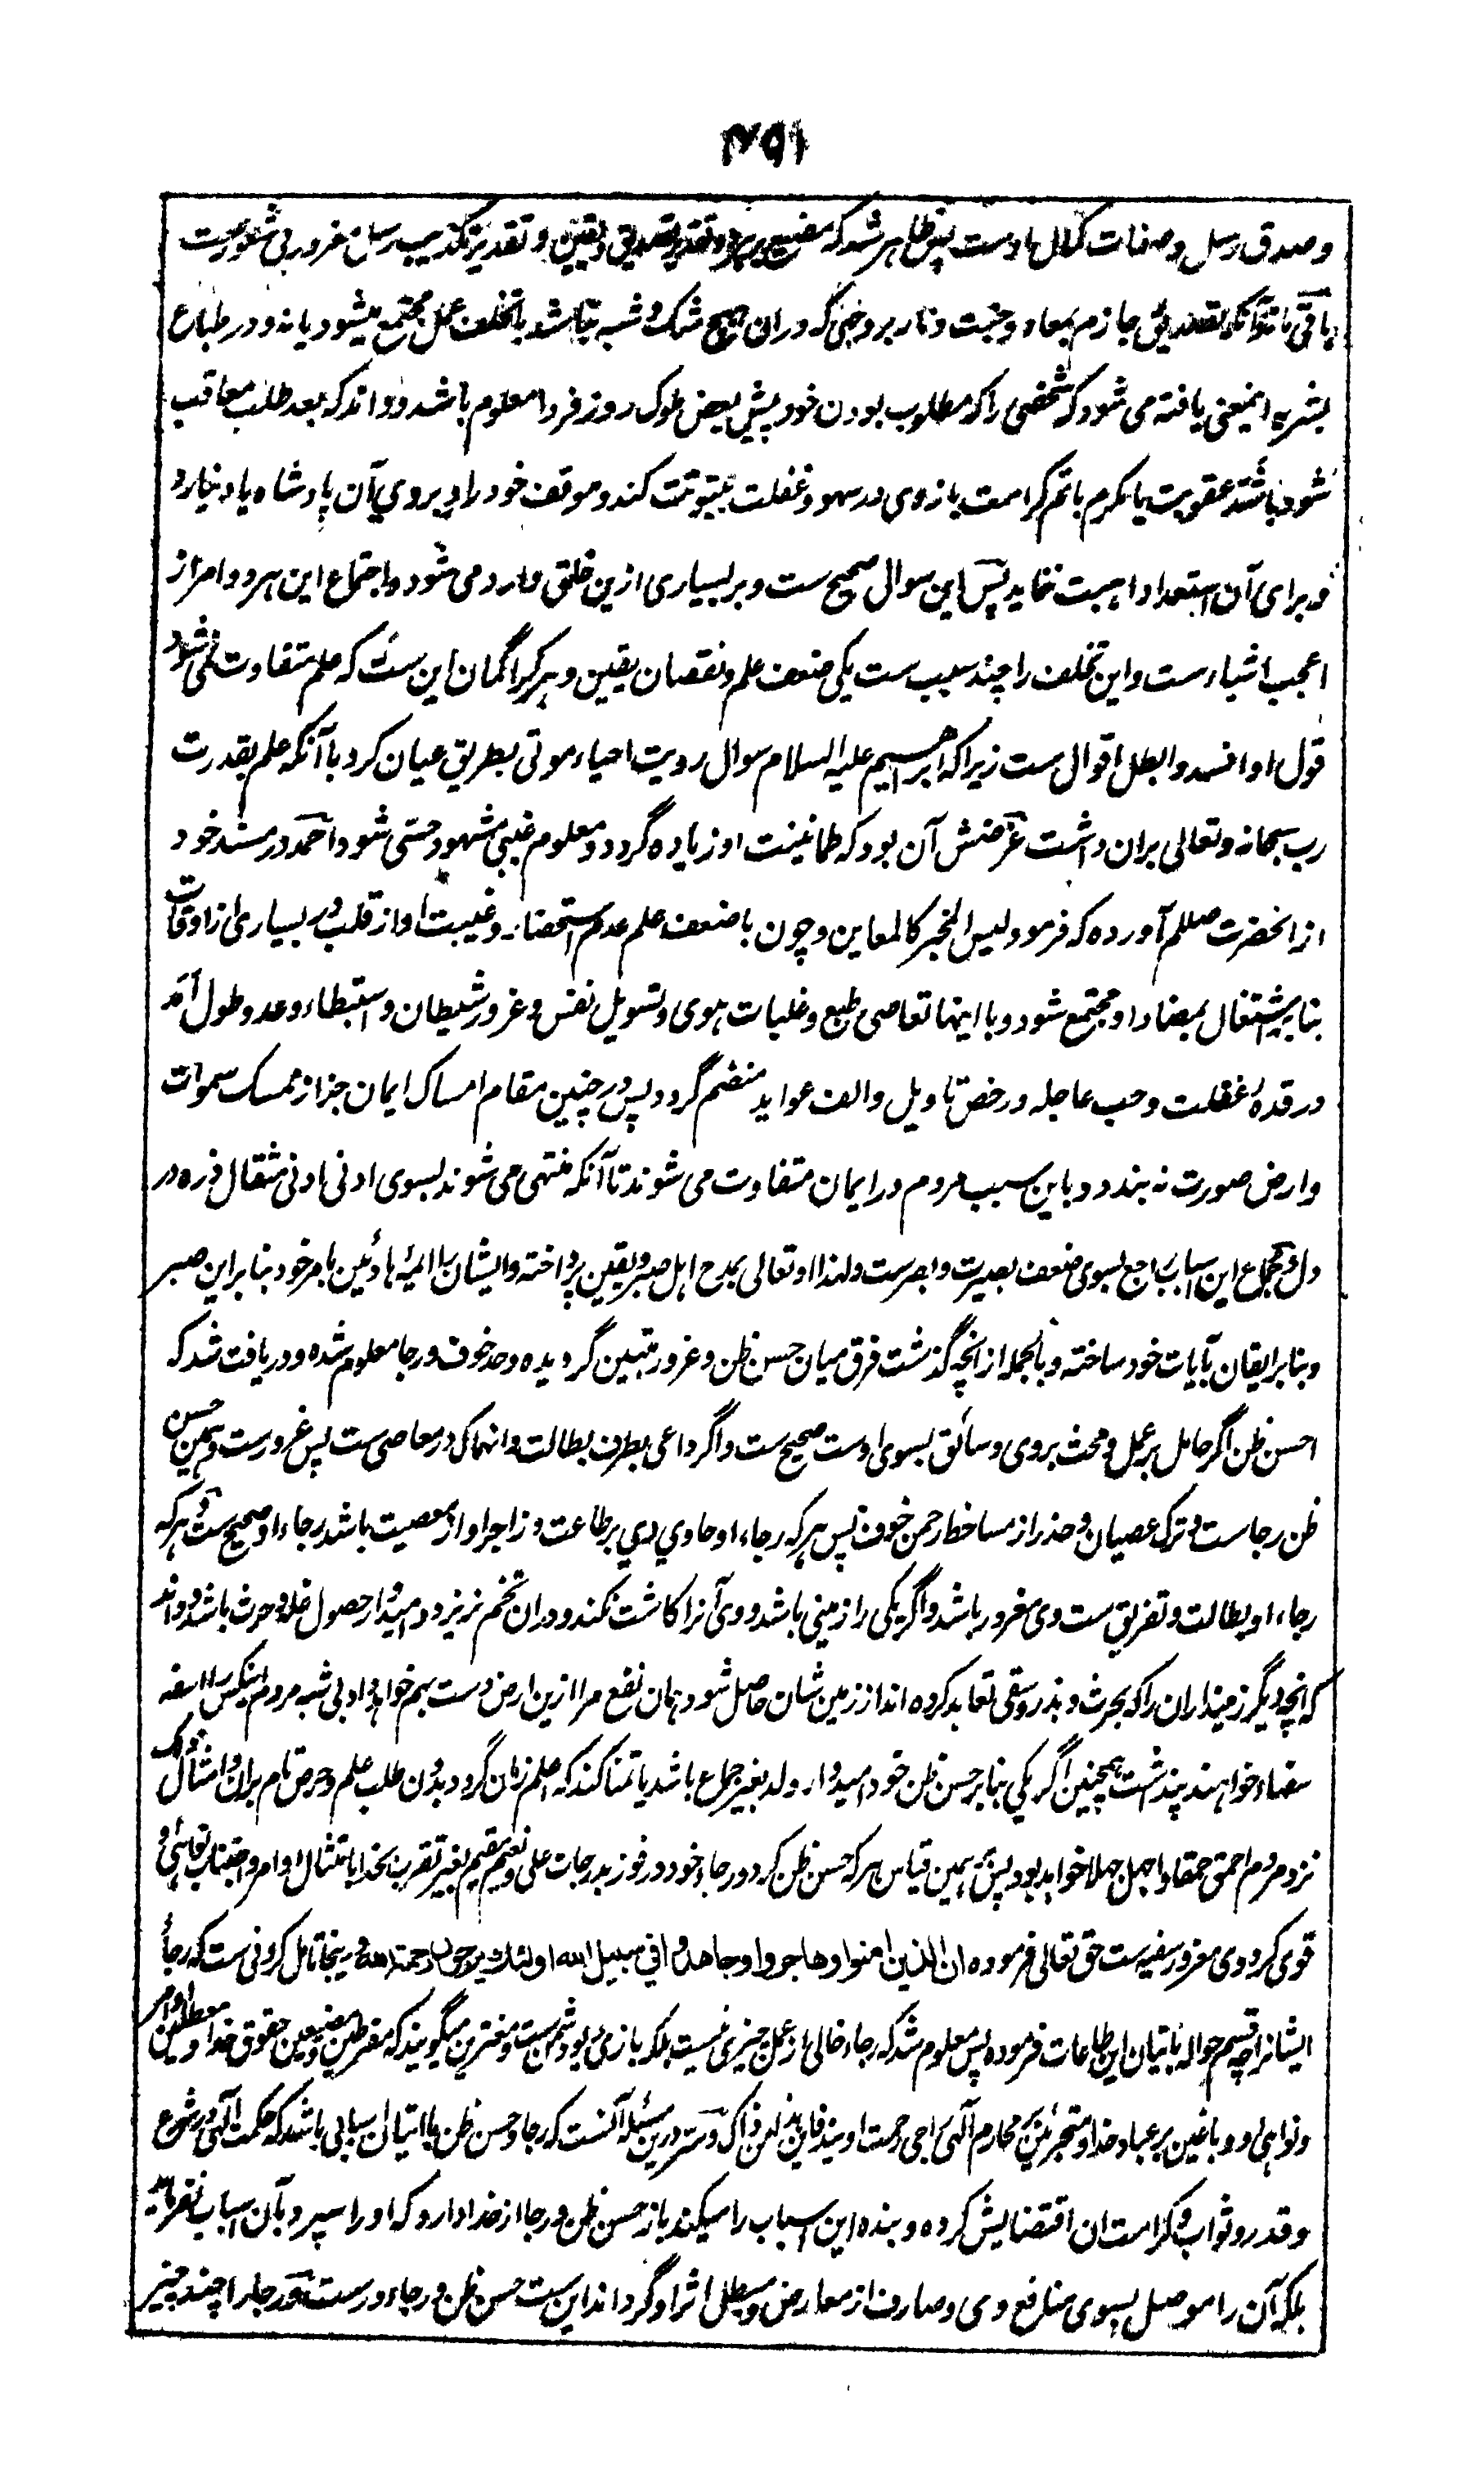 ۴۵۱
و صدق رسل و صفات کمال اوست پس ظاهر شد که مضیع بر هر دو تقدیر تصدیق و یقین و تقدیر تکذیب رسل مغرور بی شعورست
باقی ماند آنکه تصدیق جازم بمعاد و جنت و نار بر وجهی که دران هیچ شک و شبه نباشد با تخلف عمل مجتمع میشود یا نه و در طباع
بشریه اینمعنی یافته می شود که شخصی را که مطلوب بودن خود پیش بعض ملوک روز فردا معلوم باشد و داند که بعد طلب معاقب
شود باشد عقوبت یا مکرم باتم کرامت باز وی در سهو و غفلت بیتوتت کند و موقف خود را پیروی آن پادشاه یاد نیارد
و برای آن استعداد اهبت ننماید پس این سوال صحیح ست و بر بسیاری ازین خلق وارد می شود و اجتماع این هر دو امر از
اعجب اشیاءست و این تخلف را چند سبب ست یکی ضعف علم و نقصان یقین و هر کرا گمان این ست که علم متفاوت نمی شود
قول او افسد و ابطل اقوال ست زیرا که ابراهیم علیه السلام سوال رویت احیاء موتی بطریق عیان کرد با آنکه علم بقدرت
رب سبحانه و تعالی بران داشت غرضش آن بود که طمانینت او زیاده گردد و معلوم غیبی مشهود حسی شود احمد در مسند خود
از آنحضرت صلعم آورده که فرمود لیس الخبر کالمعاین و چون با ضعف علم عدم استحضار و غیبت او از قلب در بسیاری از اوقات
بنا بر اشتغال بمضاد او مجتمع شود و با اینها تقاضی طبع و غلبات هوی و تسویل نفس و غرور شیطان و استبطاء وعد و طول امد
و رقدهٔ غفلت و حب عاجله و رخص تاویل و الف عواید منضم گردد پس در چنین مقام امساک ایمان جز از ممسک سموات
و ارض صورت نه بندد و باین سبب مردم در ایمان متفاوت می شوند تا آنکه منتهی می شوند بسوی ادنی ادنی مثقال ذره در
دل و جماع این اسباب راجع بسوی ضعف بصیرت و صبرست و لهذا او تعالی بمدح اهل صبر و یقین پرداخته و ایشان را ایمهٔ هادئین بامر خود بنا بر این صبر
و بنا بر ایقان بآیات خود ساخته و بالجمله از آنچه گذشت فرق میان حسن ظن و غرور متبین گردیده و حد خوف و رجا معلوم شده و دریافت شد که
احسن ظن اگر حامل بر عمل و محث بروی و سائق بسوی اوست صحیح ست و اگر داعی بطرف بطالت و انهماک در معاصی ست پس غرورست و همین حسن
ظن رجاست و ترک عصیان و حذر از مساخط رحمن خوف پس هر که رجاء او حاوی وی بر طاعت و زاجر او از معصیت باشد رجاء او صحیح ست و هر که
رجاء او بطالت و تفریق ست وی مغرور باشد و اگر یکی را زمینی باشد و وی آنرا کاشت نکند و دران تخم نریزد و امیدوار حصول غله و حرث باشد و داند
که آنچه دیگر زمینداران را که بحرث و بذر و سقی تعاهد کرده اند از زمین شان حاصل شود همان نفع مرا ازین ارض دست بهم خواهد داد بی شبه مردم اینکس را اسفه
سفهاء خواهند پنداشت همچنین اگر یکی بنا بر حسن ظن خود امیدوار ولد بغیر جماع باشد یا تمنا کند که اعلم زمان گردد بدون طلب علم و حرص تام بران و امثال ذلک
نزد مردم احمق حمقا و اجهل جهلا خواهد بود پس بر همین قیاس هر که حسن ظن کرد و رجاء خود در فوز بدرجات علی و نعیم مقیم بغیر تقرب بخدا بامتثال اوامر و اجتناب نواهی
قوی کرد وی مغرور سفیه ست حق تعالی فرموده ان الذین امنوا وهاجروا وجاهدوا فی سبیل الله اولئک یرجون رحمة الله درینجا تامل کردنی ست که رجأ
ایشانرا چه قسم حواله باتیان این طاعات فرموده پس معلوم شد که رجاء خالی از عمل چیزی نیست بلکه بازی و مغترین میگویند که مفرطین مضیعین حقوق خدا و معطلین اوامر
و نواهی او و باغین بر عباد خدا و متجرئین بر محارم آلهی راجی رحمت اویند فاین هذا من ذاک و سر درین مسئله آنست که رجا و حسن ظن با اتیان اسبابی باشد که حکمت آلهی در شرع
و قدر و ثواب و کرامت ان اقتضایش کرده و بنده این اسباب را میکند باز حسن ظن و رجا از خدا دارد که او را سپرد بآن اسباب نفرماید
بلکه آن را موصل بسوی منافع وی و صارف از معارض و مبطل اثر او گرداند این ست حسن ظن و رجاء درست و رجا را چند چیز